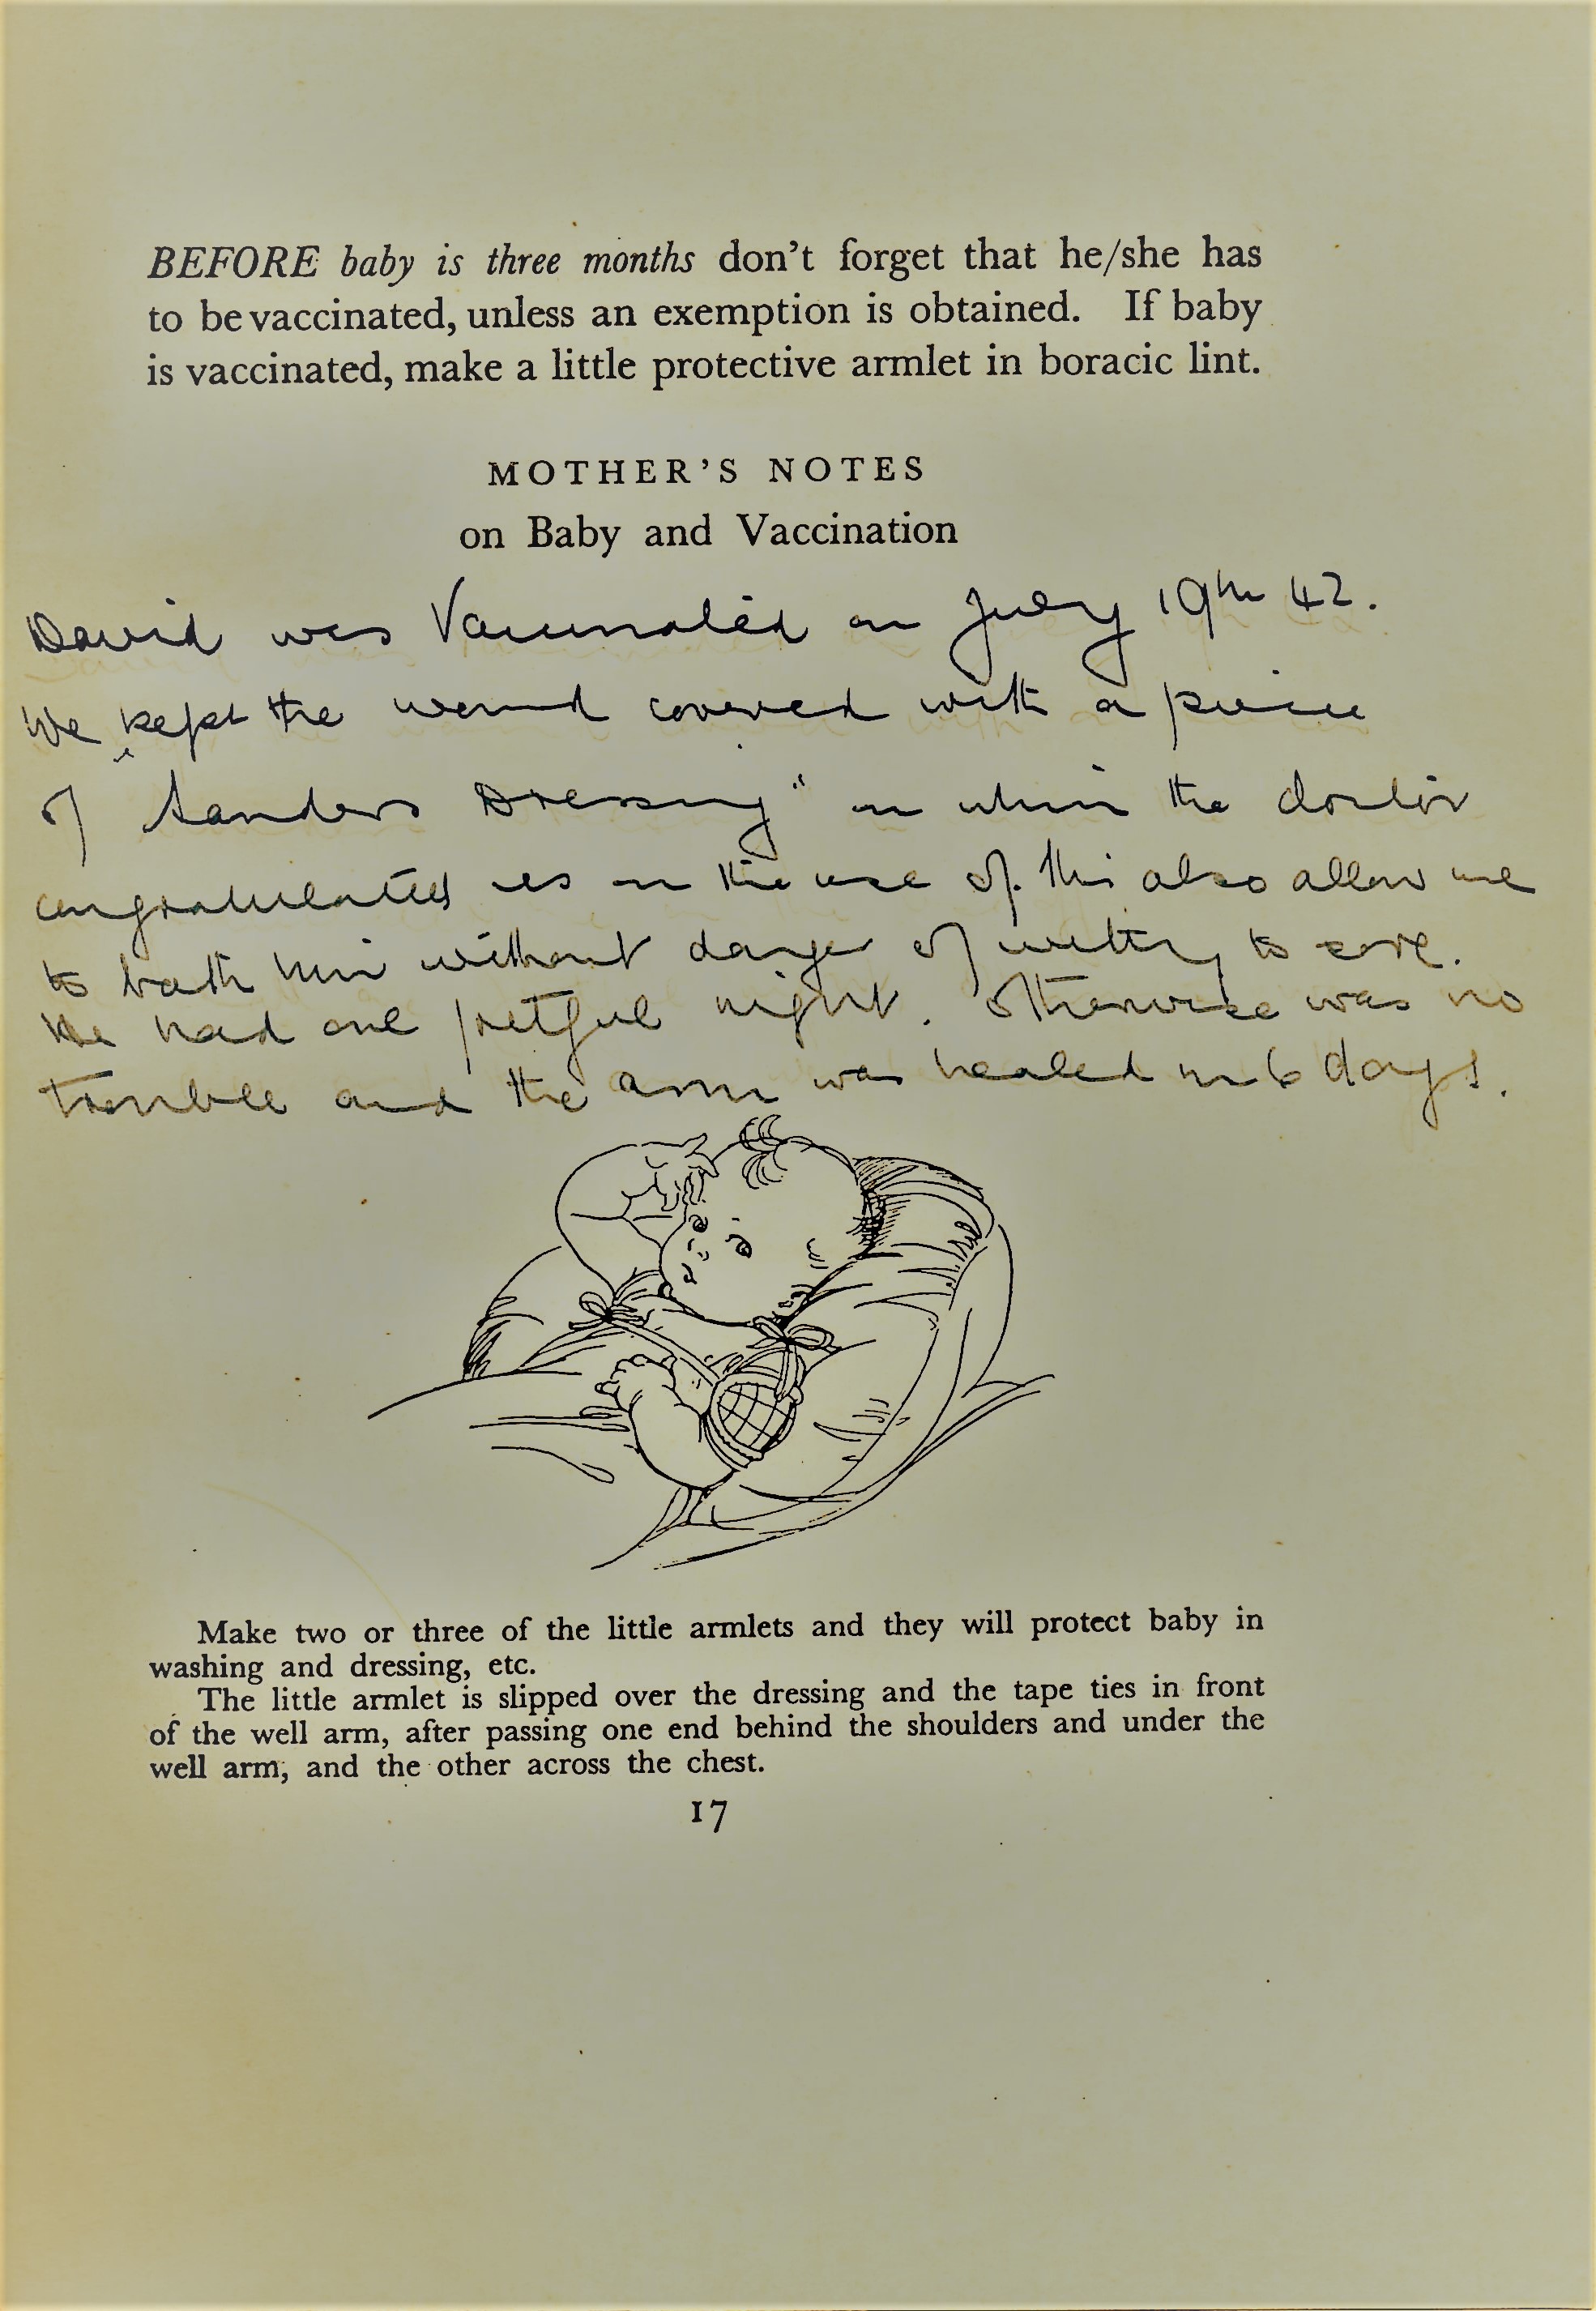 BEFORE baby is three months don't forget that he/she has
to be vaccinated, unless an exemption is obtained. If baby
is vaccinated, make a little protective armlet in boracic lint.
MOTHER'S NOTES
on Baby and Vaccination
David was Vaccinated on July 19th 42.
We kept the wound covered with a piece
of "Sanders Dressing" on which the doctor
congratulated us on the use of. This also allow me
to bath him without danger of wetting to sore.
He had one fretful night. Otherwise was no
trouble and the arm was healed in 6 days.
Make two or three of the little armlets and they will protect baby in
washing and dressing, etc.
The little armlet is slipped over the dressing and the tape ties in front
of the well arm, after passing one end behind the shoulders and under the
well arm, and the other across the chest.
17